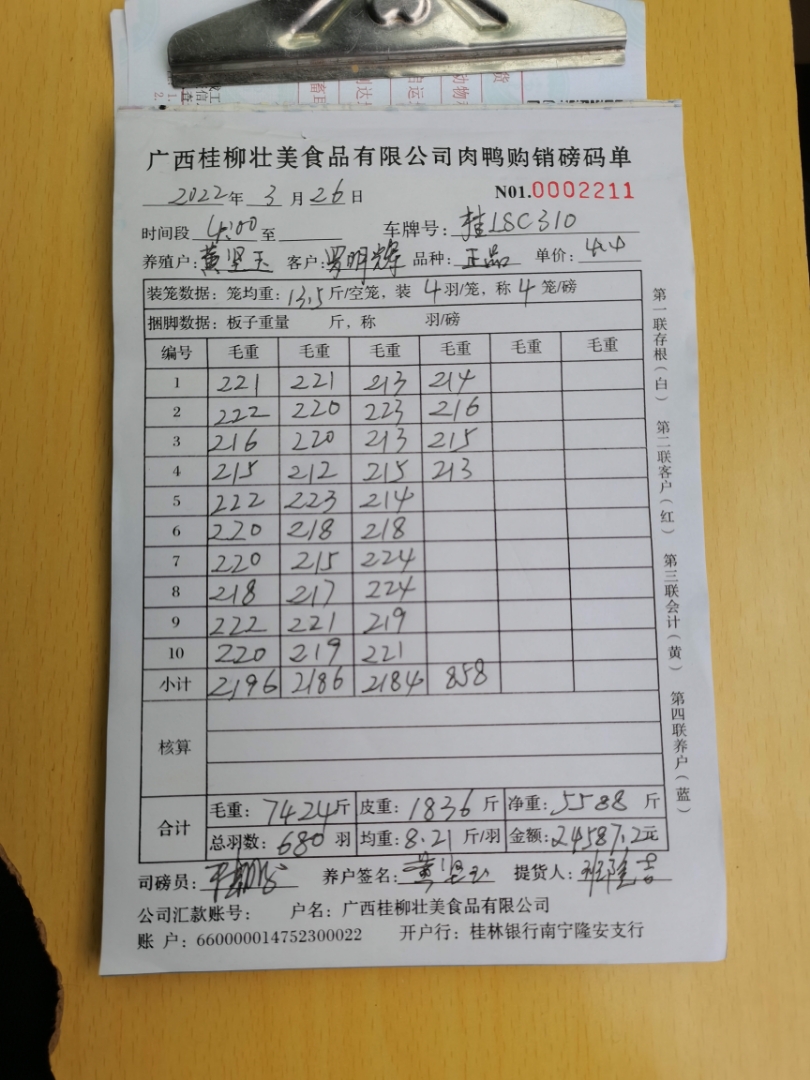 广西桂柳壮美食品有限公司肉鸭购销磅码单
2022年 3 月 26 日 N01.0002211
时间段 4:00 至 车牌号: 桂LSC310
养殖户: 黄坚玉 客户: 罗明辉 品种: 正品 单价: 4.4
装笼数据: 笼均重: 13.5 斤/空笼, 装 4 羽/笼, 称 4 笼/磅
捆脚数据: 板子重量 斤, 称 羽/磅
编号 毛重 毛重 毛重 毛重 毛重 毛重
1 221 221 213 214
2 222 220 223 216
3 216 220 213 215
4 215 212 215 213
5 222 223 214
6 220 218 218
7 220 215 224
8 218 217 224
9 222 221 219
10 220 219 221
小计 2196 2186 2184 858
核算
合计 毛重: 7424斤 皮重: 1836 斤 净重: 5588 斤
总羽数: 680 羽 均重: 8.21 斤/羽 金额: 24587.2元
司磅员: 养户签名: 黄坚玉 提货人:
公司汇款账号: 户名: 广西桂柳壮美食品有限公司
账 户: 660000014752300022 开户行: 桂林银行南宁隆安支行
第一联存根(白) 第二联客户(红) 第三联会计(黄) 第四联养户(蓝)